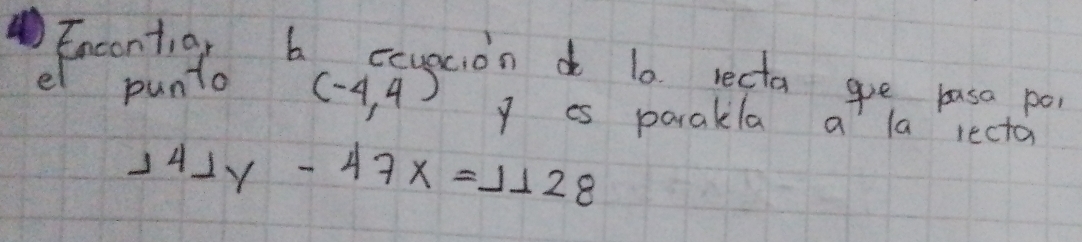 4) Encontrar la ecuación de la recta que pasa por
el punto (-4,4) y es paralela a la recta
141y - 47x = 1128